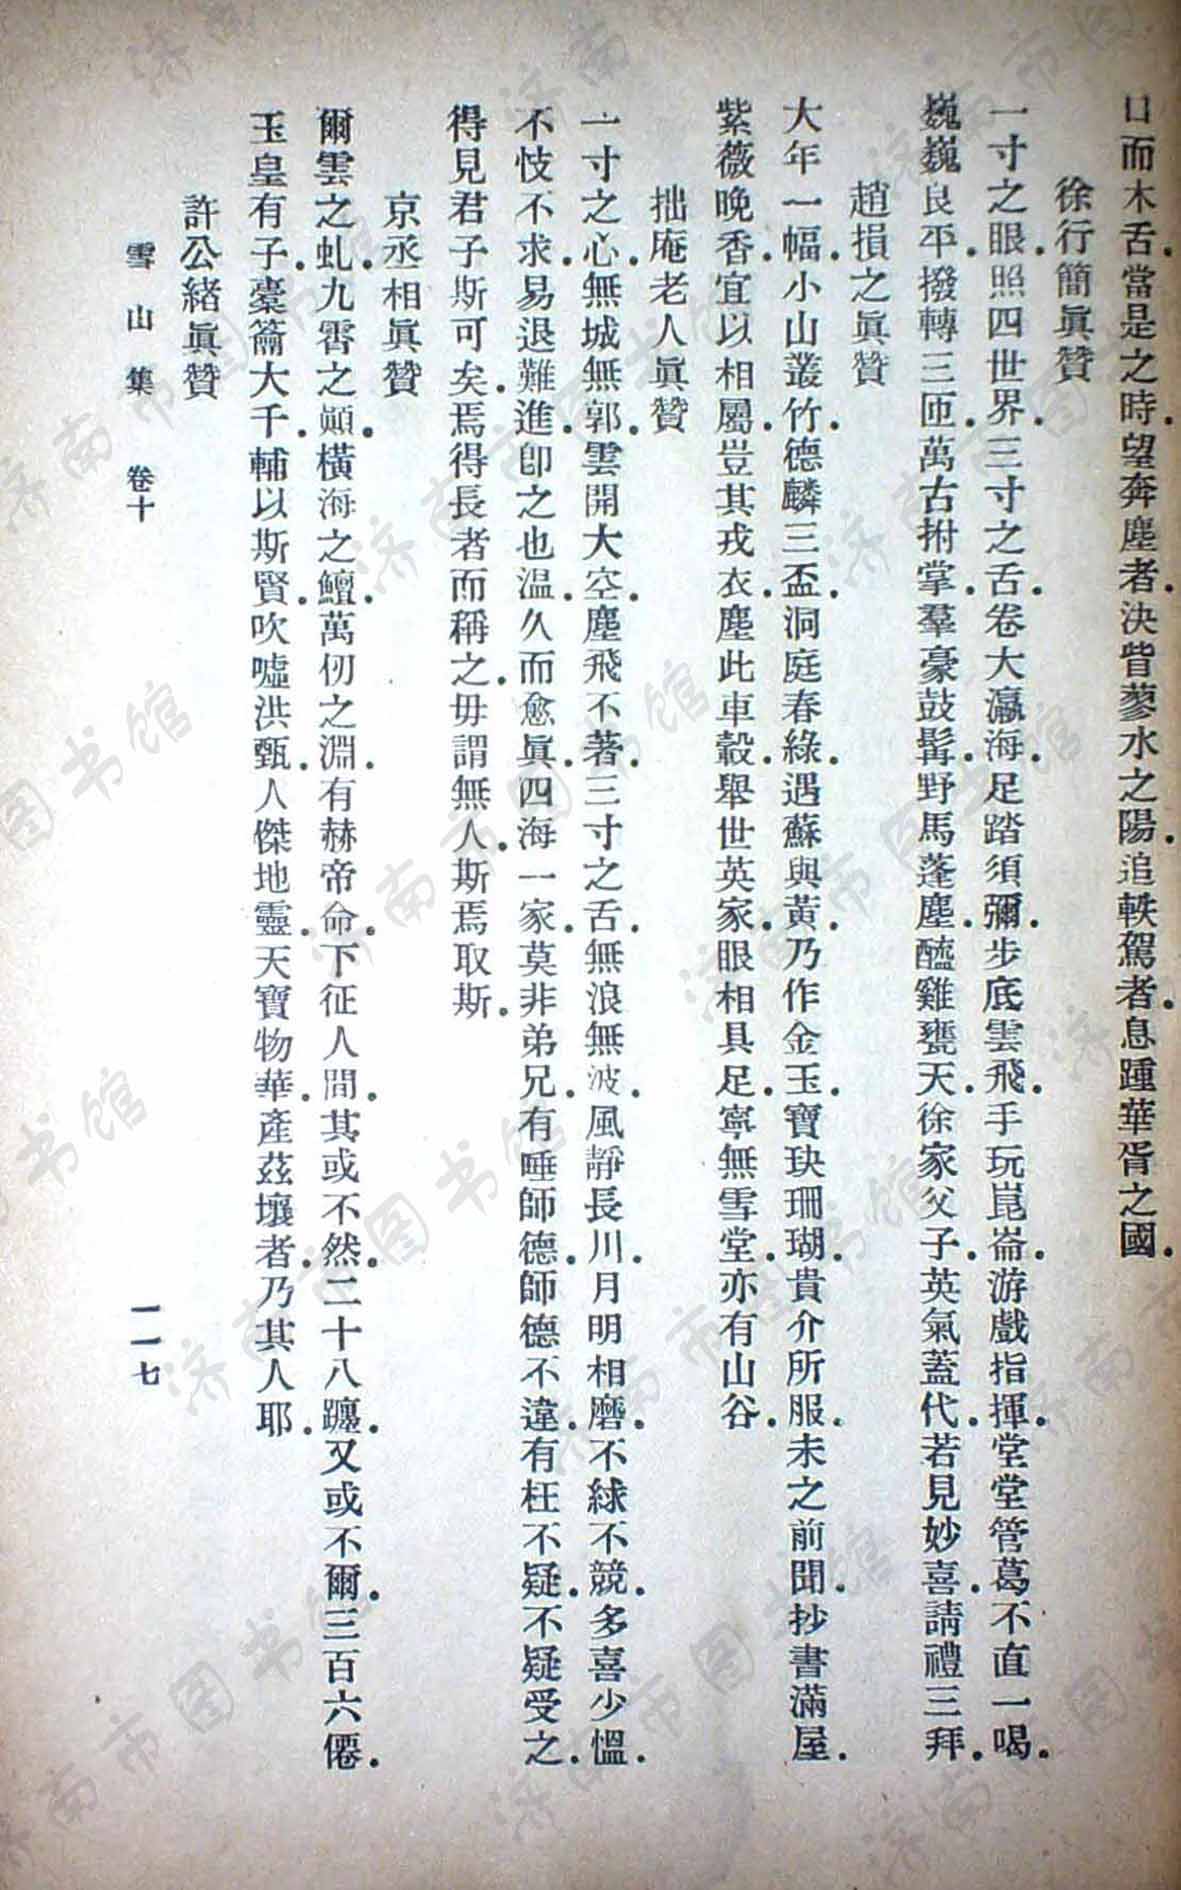 口而木舌.當是之時.望奔塵者.決眥蓼水之陽.追軼駕者.息踵華胥之國.
徐行簡眞贊
一寸之眼.照四世界.三寸之舌.卷大瀛海.足踏須彌.步底雲飛.手玩崑崙.游戲指揮.堂堂管葛.不直一喝.
巍巍良平.撥轉三匝.萬古拊掌.羣豪鼓髯.野馬蓬塵.醯雞甕天.徐家父子.英氣蓋代.若見妙喜.請禮三拜.
趙損之眞贊
大年一幅.小山叢竹.德麟三盃.洞庭春綠.遇蘇與黃.乃作金玉.寶玦珊瑚.貴介所服.未之前聞.抄書滿屋.
紫薇晚香.宜以相屬.豈其戎衣.塵此車轂.舉世英家.眼相具足.寧無雪堂.亦有山谷.
拙庵老人眞贊
一寸之心.無城無郭.雲開大空.塵飛不著.三寸之舌.無浪無波.風靜長川.月明相磨.不絿不競.多喜少慍.
不忮不求.易退難進.卽之也溫.久而愈眞.四海一家.莫非弟兄.有唾師德.師德不違.有枉不疑.不疑受之.
得見君子斯可矣.焉得長者而稱之.毋謂無人.斯焉取斯.
京丞相眞贊
爾雲之虬.九霄之顚.橫海之鱣.萬仞之淵.有赫帝命.下征人間.其或不然.二十八躔.又或不爾.三百六僊.
玉皇有子.橐籥大千.輔以斯賢.吹噓洪甄.人傑地靈.天寶物華.產茲壤者.乃其人耶.
許公緒眞贊
雪山集 卷十 一一七
济南市图书馆